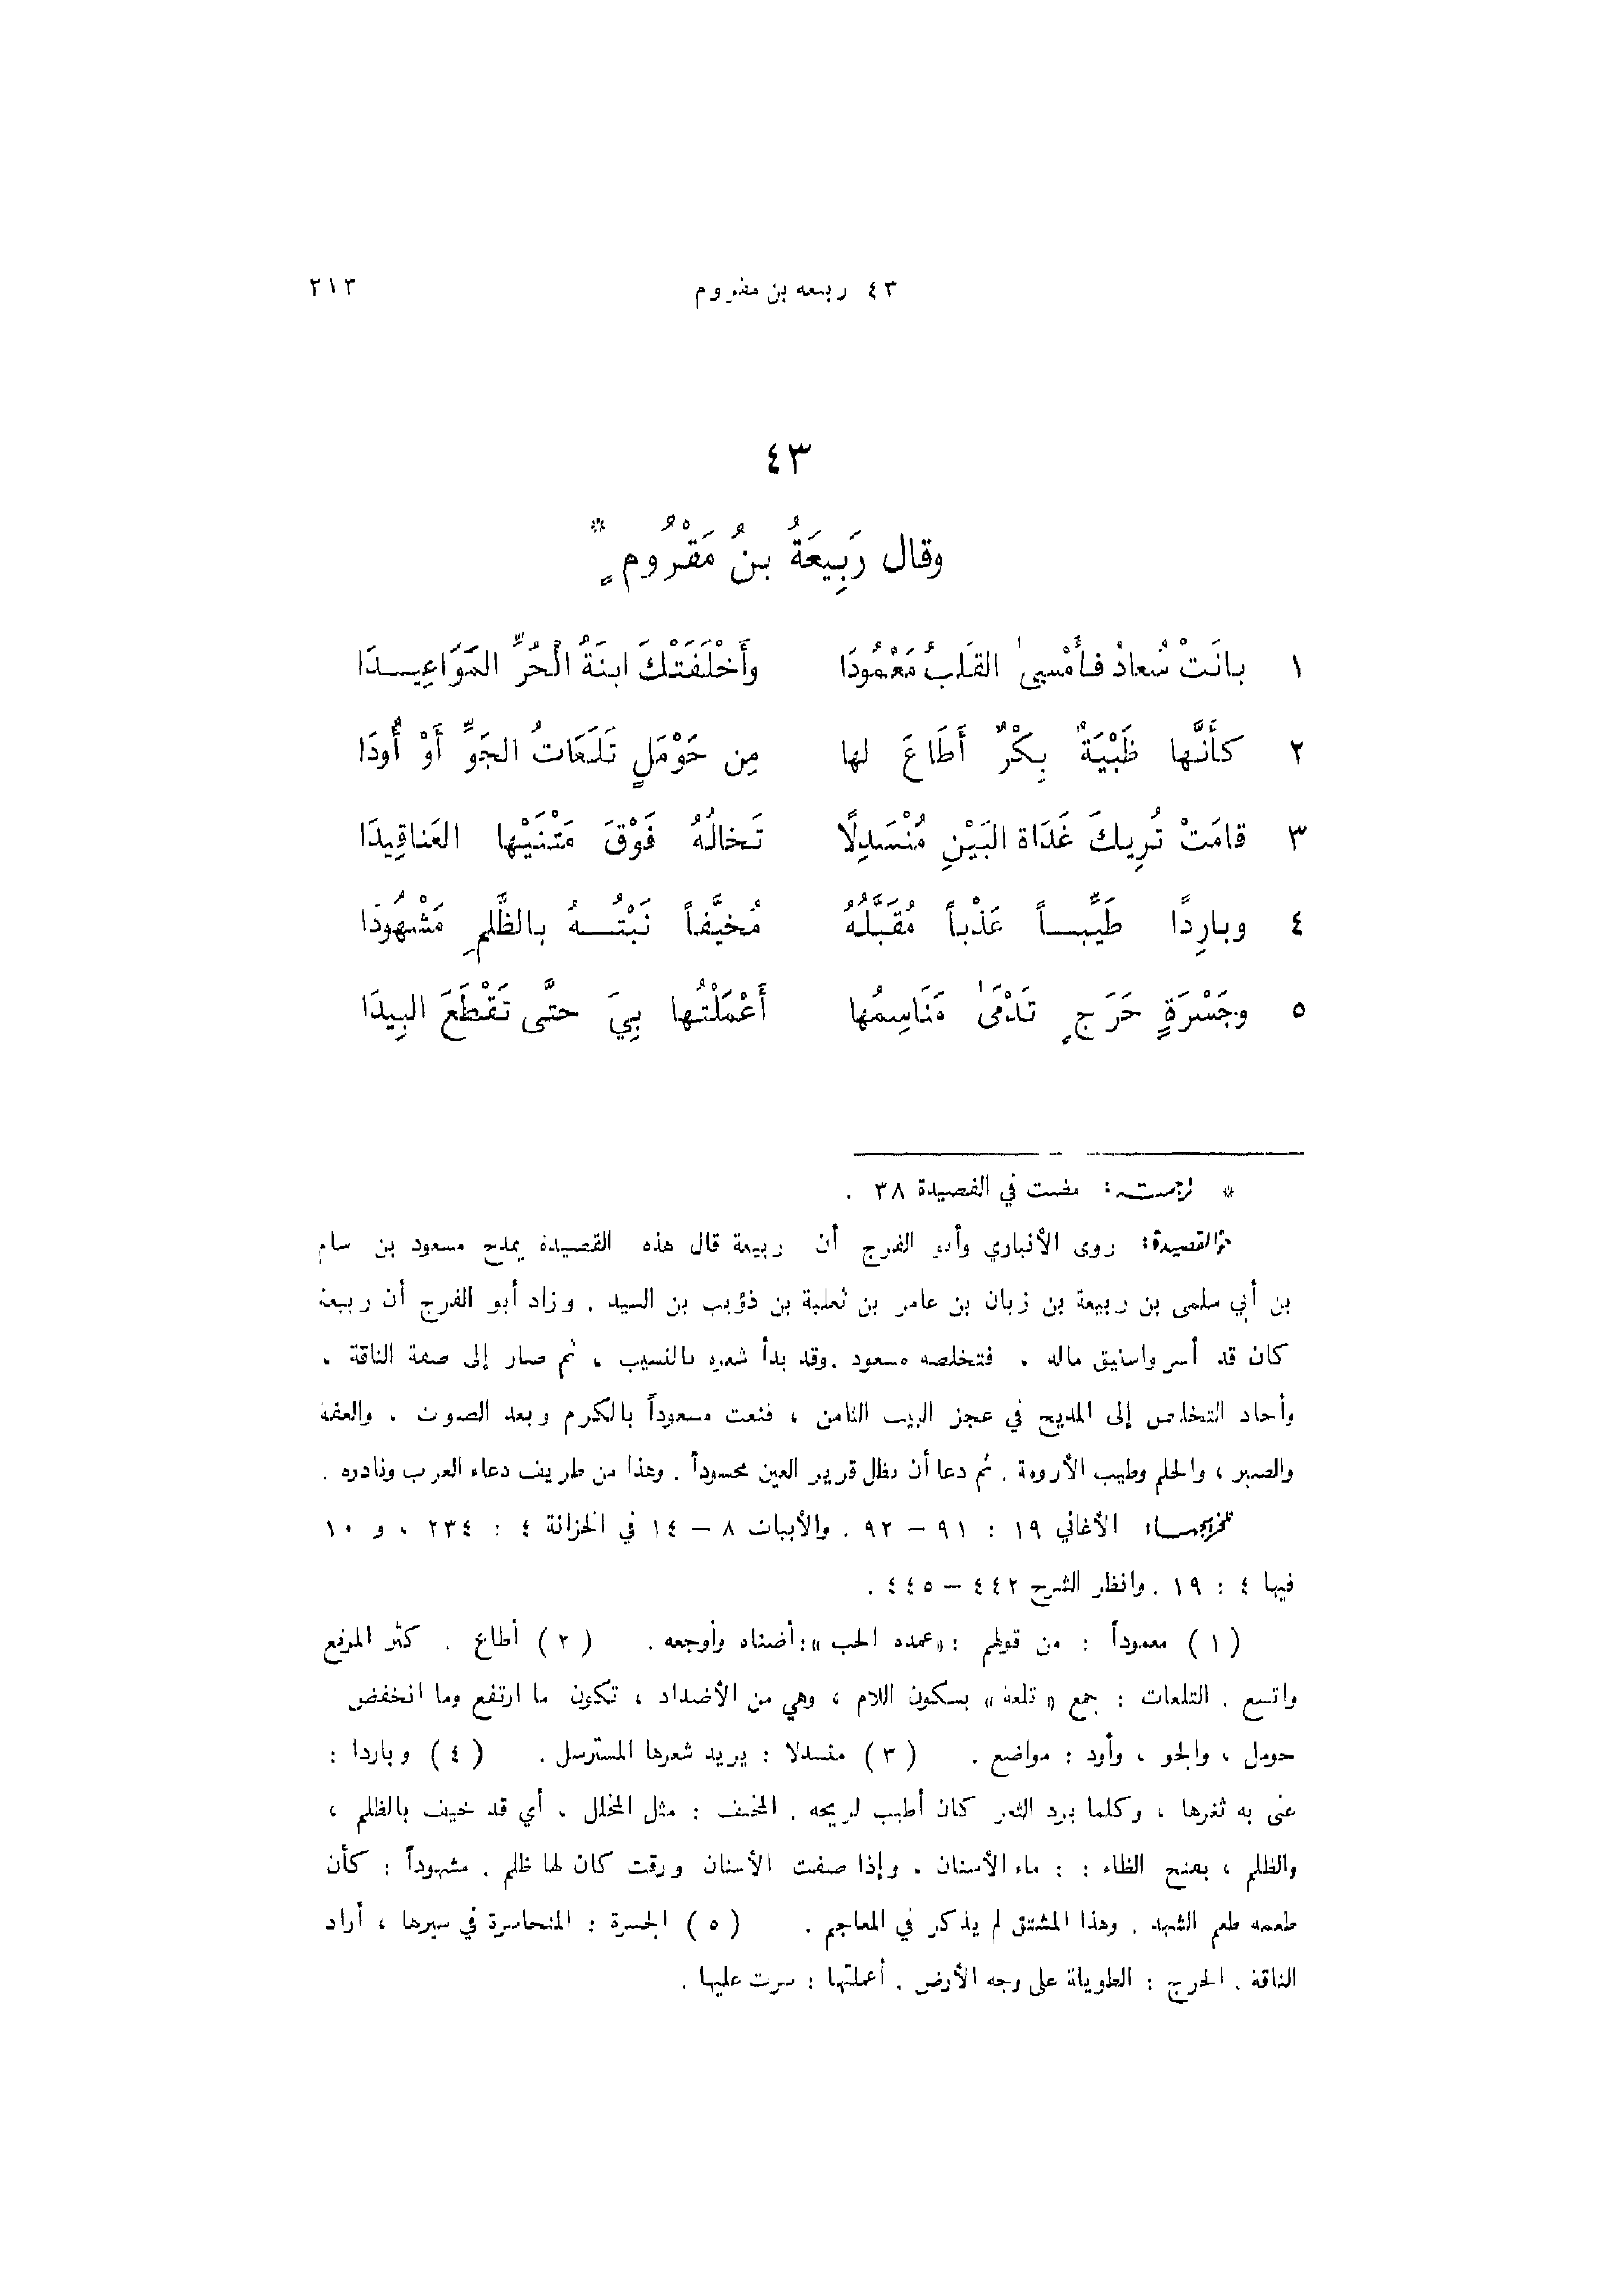 ٤٣ ربيعه بن مقروم ٢١٣
٤٣
وقال رَبِيعَةُ بنُ مَقْرُومٍ *
١ بانَتْ سُعادُ فأَمْسىٰ القَلبُ مَعْمُودَا وأَخْلَفَتْكَ ابنَةُ الْحُرِّ المَوَاعِيدَا
٢ كأَنَّها ظَبْيَةٌ بِكْرٌ أَطَاعَ لها مِن حَوْمَلٍ تَلَعَاتُ الجَوِّ أَوْ أُودَا
٣ قامَتْ تُرِيكَ غَدَاة البَيْنِ مُنْسَدِلًا تَخالُهُ فَوْقَ مَتْنَيْها العَناقِيدَا
٤ وبارِدًا طَيِّباً عَذْباً مُقَبَّلُهُ مُخَيَّفاً نَبْتُهُ بالظَّلمِ مَشْهُودَا
٥ وجَسْرَةٍ حَرَجٍ تَدْمَىٰ مَنَاسِمُها أَعْمَلْتُها بِيَ حتَّى تَقْطَعَ البِيدَا
* ترجمته: مضت في القصيدة ٣٨ .
جو القصيدة: روى الأنباري وأبو الفرج أن ربيعة قال هذه القصيدة يمدح مسعود بن سالم
بن أبي سلمى بن ربيعة بن زبان بن عامر بن ثعلبة بن ذؤيب بن السيد . وزاد أبو الفرج أن ربيعة
كان قد أسر واستيق ماله ، فتخلصه مسعود .وقد بدأ شعره بالنسيب ، ثم صار إلى صفة الناقة .
وأجاد التخلص إلى المديح في عجز البيت الثامن ، فنعت مسعوداً بالكرم وبعد الصوت ، والعفة
والصبر ، والحلم وطيب الأرومة . ثم دعا أن يظل قرير العين محسوداً . وهذا من طريف دعاء العرب ونادره .
تخريجها: الأغاني ١٩ : ٩١ – ٩٢ . والأبيات ٨ – ١٤ في الخزانة ٤ : ٢٣٤ ، و ١٠
فيها ٤ : ١٩ . وانظر الشرح ٤٤٢ – ٤٤٥ .
(١) معموداً : من قولهم : «عمده الحب»: أضناه وأوجعه . (٢) أطاع . كثر المرتع
واتسع . التلعات : جمع « تلعة » بسكون اللام ، وهي من الأضداد ، تكون ما ارتفع وما انخفض
حومل ، والجو ، وأود : مواضع . (٣) منسدلا : يريد شعرها المسترسل . (٤) وباردا :
عنى به ثغرها ، وكلما برد الثغر كان أطيب لريحه . المخيف : مثل المخلل . أي قد خيف بالظلم ،
والظلم ، بفتح الظاء : : ماء الأسنان . وإذا صفت الأسنان ورقت كان لها ظلم . مشهوداً : كأن
طعمه طعم الشهد . وهذا المشتق لم يذكر في المعاجم . (٥) الجسرة : المتجاسرة في سيرها ، أراد
الناقة . الحرج : الطويلة على وجه الأرض . أعملتها : سرت عليها .